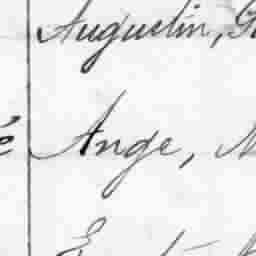 Augustin,
é Ange,